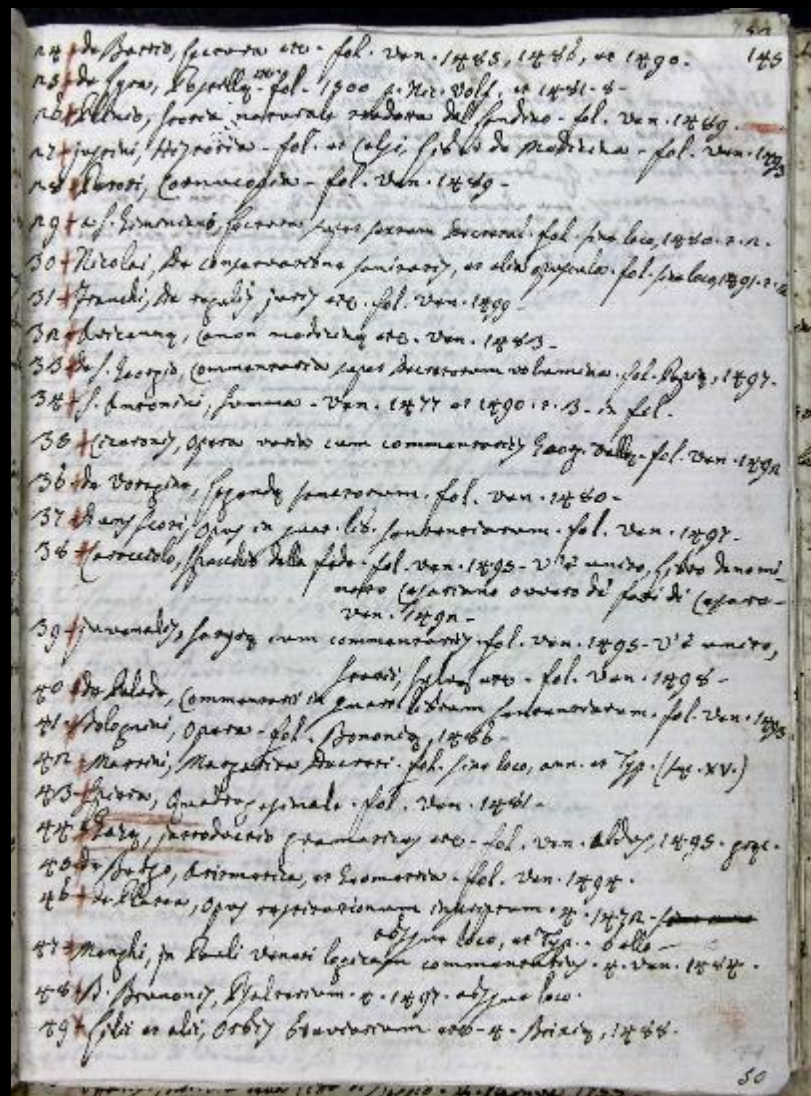 145
24 de Butrio, lectura etc. fol. Ven. 1485, 1486, et 1490.
25 de Lyra, Postillæ fol. 1500 et 1481. 8.
26 Plinio, Storia naturale tradotta dal Landino - fol. Ven. 1489.
27 Justini, Historia - fol. et Celsi, Libri de Medicina - fol. Ven. 1493
28 Peroti, Cornucopia - fol. Ven. 1489.
29 a S. Geminiano, Lectura super sextum Decretal. fol. sine loco, 1480.
30 Nicolai, De conservatione sanitatis, et alia opuscula. fol. sine loco, 1491
31 Franchi, De regulis juris etc. fol. Ven. 1499.
32 Avicennæ, Canon medicinæ etc. Ven. 1483.
33 de S. Georgio, Commentaria super Decretorum volumina. fol. Papiæ, 1497.
34 S. Antonini, Summa - Ven. 1477 et 1490. in fol.
35 Ciceronis, Opera varia cum commentariis Georg. Vallæ - fol. Ven. 1492
36 de Voragine, Legendæ sanctorum. fol. Ven. 1480.
37 Scoti, Opus in quat. lib. sententiarum. fol. Ven. 1497.
38 Caracciolo, Specchio della fede. fol. Ven. 1495. V'è unito, Libro denomi-
nato Cesariano ovvero de' fatti di Cesare -
Ven. 1492.
39 Juvenalis, Satyræ cum commentariis. fol. Ven. 1495. V'è unito,
Statii, Sylvæ etc. fol. Ven. 1498.
40 de Palude, Commentarii in quartum librum sententiarum. fol. Ven. 1493
41 Bolognini, Opera - fol. Bononiæ, 1486.
42 Martini, Margarita Decreti. fol. sine loco, ann. et Typ. (XV.)
43 Quadragesimale. fol. Ven. 1481.
44 Gazæ, Introductio gramatices etc. fol. Ven. Aldus, 1495. græc.
45 de Burgo, Arismetica, et Geometria. fol. Ven. 1494.
46 de Platea, Opus restitutionum 4. 1472.
absque loco, et Typ. - bello
47 Menghi, in Pauli Veneti logicam commentarius. 4. Ven. 1484.
48 B. Brunonis, Psalterium. 4. 1497. absque loco.
49 et alii, Orbis breviarium etc. 4. Brixiæ, 1488.
50